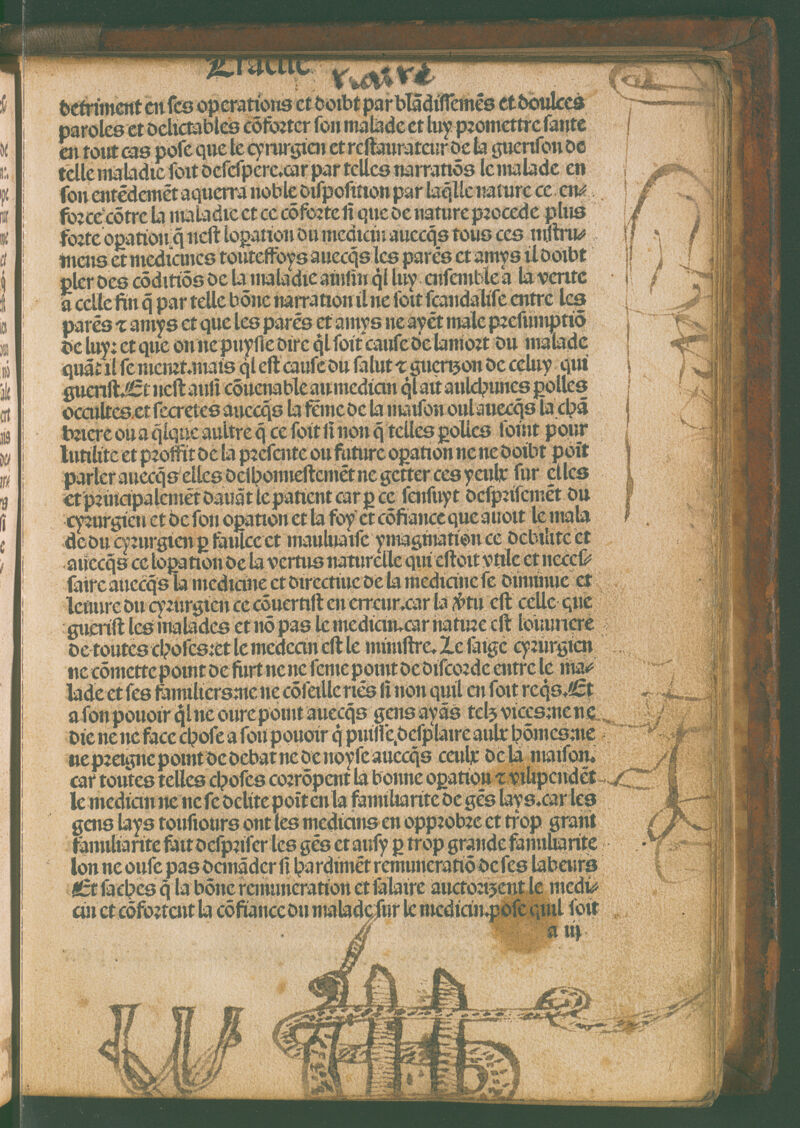 Traite
detriment en ses operations et doibt par blãdissemẽs et doulces
paroles et delictables cõforter son malade et luy promettre sante
en tout cas pose que le cyrurgien et restaurateur de la guerison de
telle maladie soit desespere.car par telles narratiõs le malade en
son entẽdemẽt aquerra noble disposition par laq̃lle nature ce en⸗
force cõtre la maladie et ce cõforte si que de nature procede plus
forte oꝑation q̃ nest loꝑation du medicin auecq̃s tous ces instru⸗
mens et medicines touteffoys auecq̃s les parẽs et amys il doibt
ꝑler des cõditiõs de la maladie ainsin q̃l luy ensemble a la verite
a celle fin q̃ par telle bõne narration il ne soit scandalise entre les
parẽs ⁊ amys et que les parẽs et amys ne ayẽt male presumptiõ
de luy: et que on ne puysse dire q̃l soit cause de la mort du malade
quãt il se meurt.mais q̃l est cause du salut ⁊ guerison de celuy qui
guerist. Et nest ausi cõuenable au medicin q̃l ait aulchunes ꝑolles
occultes.et secretes auecq̃s la fẽme de la maison ou auecq̃s la chã
briere ou a q̃lque aultre q̃ ce soit si non q̃ telles ꝑolles soint pour
lutilite et proffit de la presente ou future oꝑation ne ne doibt poĩt
parler auecq̃s elles deshonnestemẽt ne getter ces yeulx sur elles
et principalemẽt dauãt le patient car ꝑ ce sensuyt desprisemẽt du
cyrurgien et de son oꝑation et la foy et cõfiance que auoit le mala
de du cyrurgien ꝑ faulce et mauluaise ymagination ce debilite et
auecq̃s ce loꝑation de la vertus naturelle qui estoit vtile et neces⸗
saire auecq̃s la medicine et directiue de la medicine se diminue et
leuure du cyrurgien ce cõuertist en erreur.car la v̾tu est celle que
guerist les malades et nõ pas le medicin.car nature est louuriere
de toutes choses:et le medecin est le ministre. Le saige cyrurgien
ne cõmette point de furt ne ne seme point de discorde entre le ma⸗
lade et ses familiers:ne ne cõseille riẽs si non quil en soit req̃s. Et
a son pouoir q̃l ne oure point auecq̃s gens ayãs telz vices:ne ne
die ne ne face chose a son pouoir q̃ puisse desplaire aulx hõmes:ne
ne preigne point de debat ne de noyse auecq̃s ceulx de la maison.
car toutes telles choses corrõpent la bonne oꝑation ⁊ vilipendẽt
le medicin ne ne se delite poĩt en la familiarite de gẽs lays.car les
gens lays tousiours ont les medicins en opprobre et trop grant
familiarite fait despriser les gẽs et ausy ꝑ trop grande familiarite
lon ne ouse pas demãder si hardimẽt remuneratiõ de ses labeurs
Et saches q̃ la bõne remuneration et salaire auctorizent le medi⸗
cin et cõfortent la cõfiance du malade sur le medicin.pose quil soit
a iij